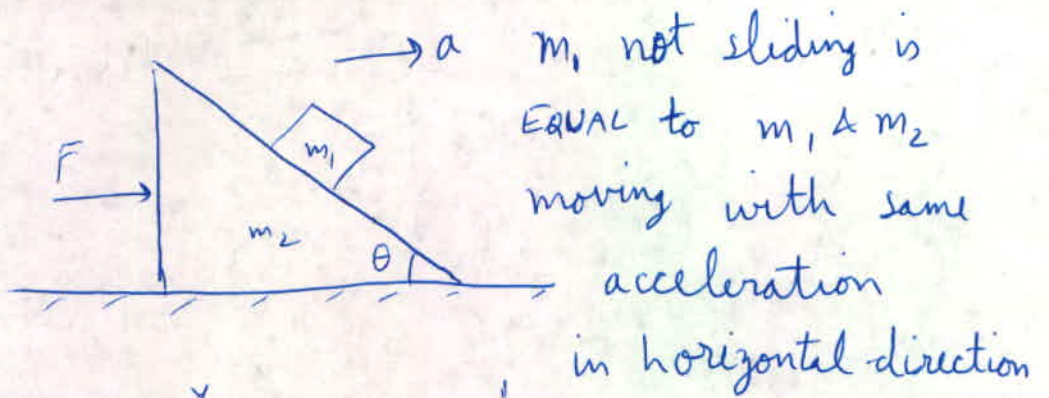 → a
m₁ not sliding is
EQUAL to m₁ & m₂
F
m₁
moving with same
m₂
θ
acceleration
in horizontal direction